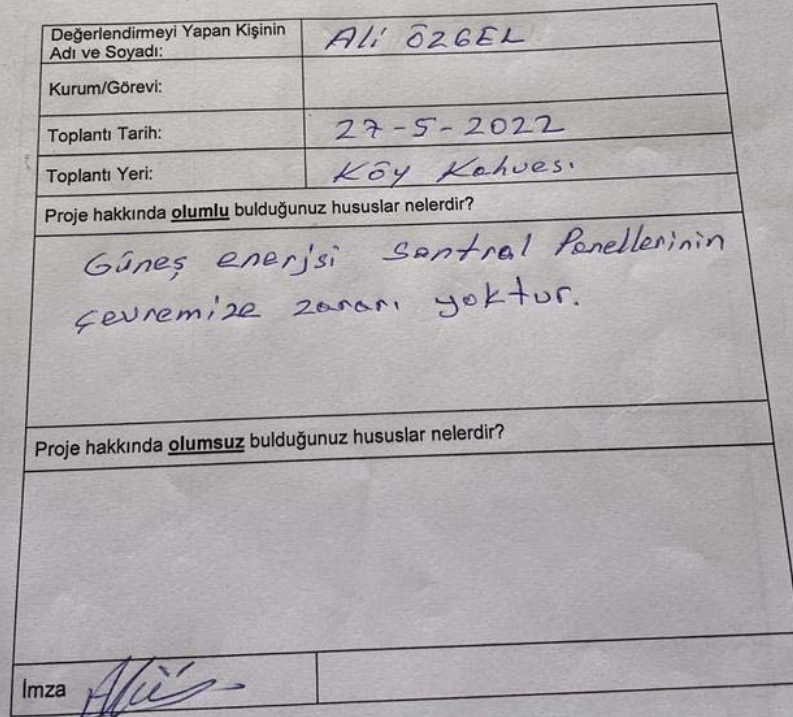 Değerlendirmeyi Yapan Kişinin
Adı ve Soyadı:
Ali ÖZGEL
Kurum/Görevi:
Toplantı Tarih:
27-5-2022
Toplantı Yeri:
Köy Kahvesi
Proje hakkında olumlu bulduğunuz hususlar nelerdir?
Güneş enerjsi Santral Panellerinin
çevremize zararı yoktur.
Proje hakkında olumsuz bulduğunuz hususlar nelerdir?
İmza